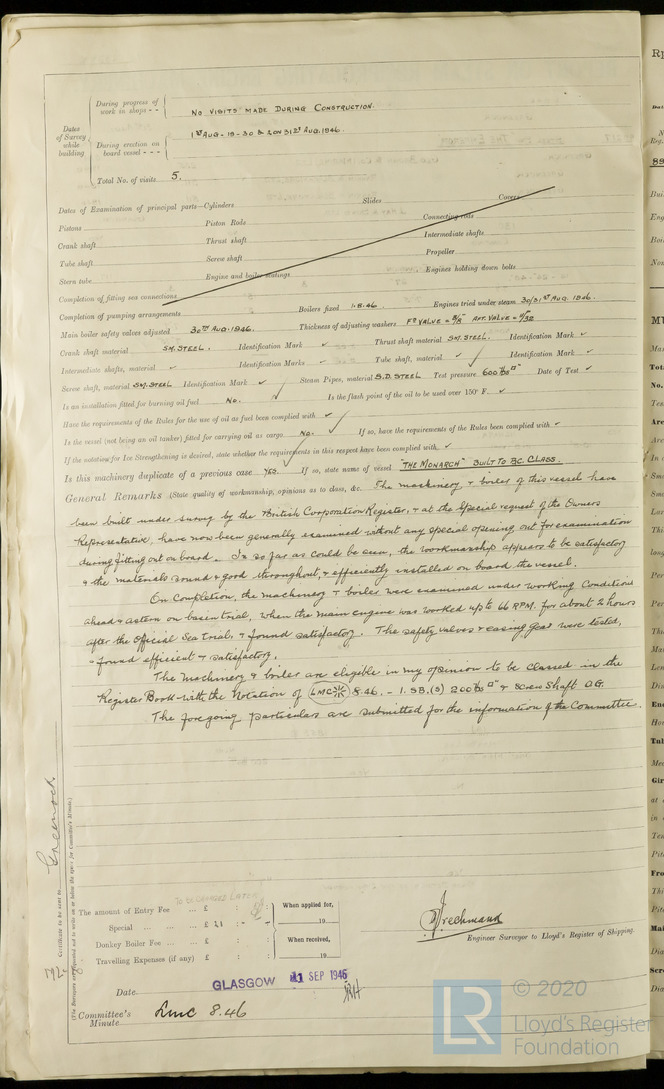 During progress of work in shops - - NO VISITS MADE DURING CONSTRUCTION.
Dates of Survey while building
During erection on board vessel - - - 1ST AUG - 19 - 30 & 2 ON 31ST AUG. 1946.
Total No. of visits 5.
Dates of Examination of principal parts—Cylinders Slides Covers
Pistons Piston Rods Connecting rods
Crank shaft Thrust shaft Intermediate shafts
Tube shaft Screw shaft Propeller
Stern tube Engine and boiler seatings Engines holding down bolts
Completion of fitting sea connections
Completion of pumping arrangements Boilers fixed 1.8.46. Engines tried under steam 30/31ST AUG. 1946.
Main boiler safety valves adjusted 30TH AUG. 1946. Thickness of adjusting washers
Crank shaft material SM. STEEL. Identification Mark ✓ Thrust shaft material SM. STEEL. Identification Mark ✓
Intermediate shafts, material ✓ Identification Marks ✓ Tube shaft, material ✓ Identification Mark ✓
Screw shaft, material SM. STEEL Identification Mark ✓ Steam Pipes, material S.D. STEEL Test pressure 600 lbs □" Date of Test ✓
Is an installation fitted for burning oil fuel NO. Is the flash point of the oil to be used over 150° F. ✓
Have the requirements of the Rules for the use of oil as fuel been complied with ✓
Is the vessel (not being an oil tanker) fitted for carrying oil as cargo NO. If so, have the requirements of the Rules been complied with ✓
If the notation for Ice Strengthening is desired, state whether the requirements in this respect have been complied with. ✓
Is this machinery duplicate of a previous case YES. If so, state name of vessel "THE MONARCH" BUILT TO B.C. CLASS.
General Remarks (State quality of workmanship, opinions as to class, &c. The machinery & boiler of this vessel have
been built under survey by the British Corporation Register, & at the Special request of the Owners
Representative, have now been generally examined without any special opening out for examination
during fitting out on board. In so far as could be seen, the workmanship appears to be satisfactory
& the materials sound & good throughout, & efficiently installed on board the vessel.
On completion, the machinery & boiler were examined under working conditions
ahead & astern on basin trial, when the main engine was worked up to 66 RPM. for about 2 hours
after the Official Sea trials & found satisfactory. The safety valves & easing gear were tested,
& found efficient & satisfactory.
The machinery & boiler are eligible in my opinion to be classed in the
Register Book with the Notation of LMC 8.46. - 1. SB. (S) 200 lbs □" & Screw Shaft O.G.
The foregoing particulars are submitted for the information of the Committee.
Certificate to be sent to Greenock.
(The Surveyors are requested not to write on or below the space for Committee's Minute.)
TO BE CHARGED LATER
The amount of Entry Fee ... £ : : When applied for,
Special ... ... ... £ 19
Donkey Boiler Fee ... ... £ : : When received,
Travelling Expenses (if any) £ : : 19
Engineer Surveyor to Lloyd's Register of Shipping.
Date GLASGOW SEP 1946
Committee's Minute LMC 8.46
LR © 2020
Lloyd's Register
Foundation